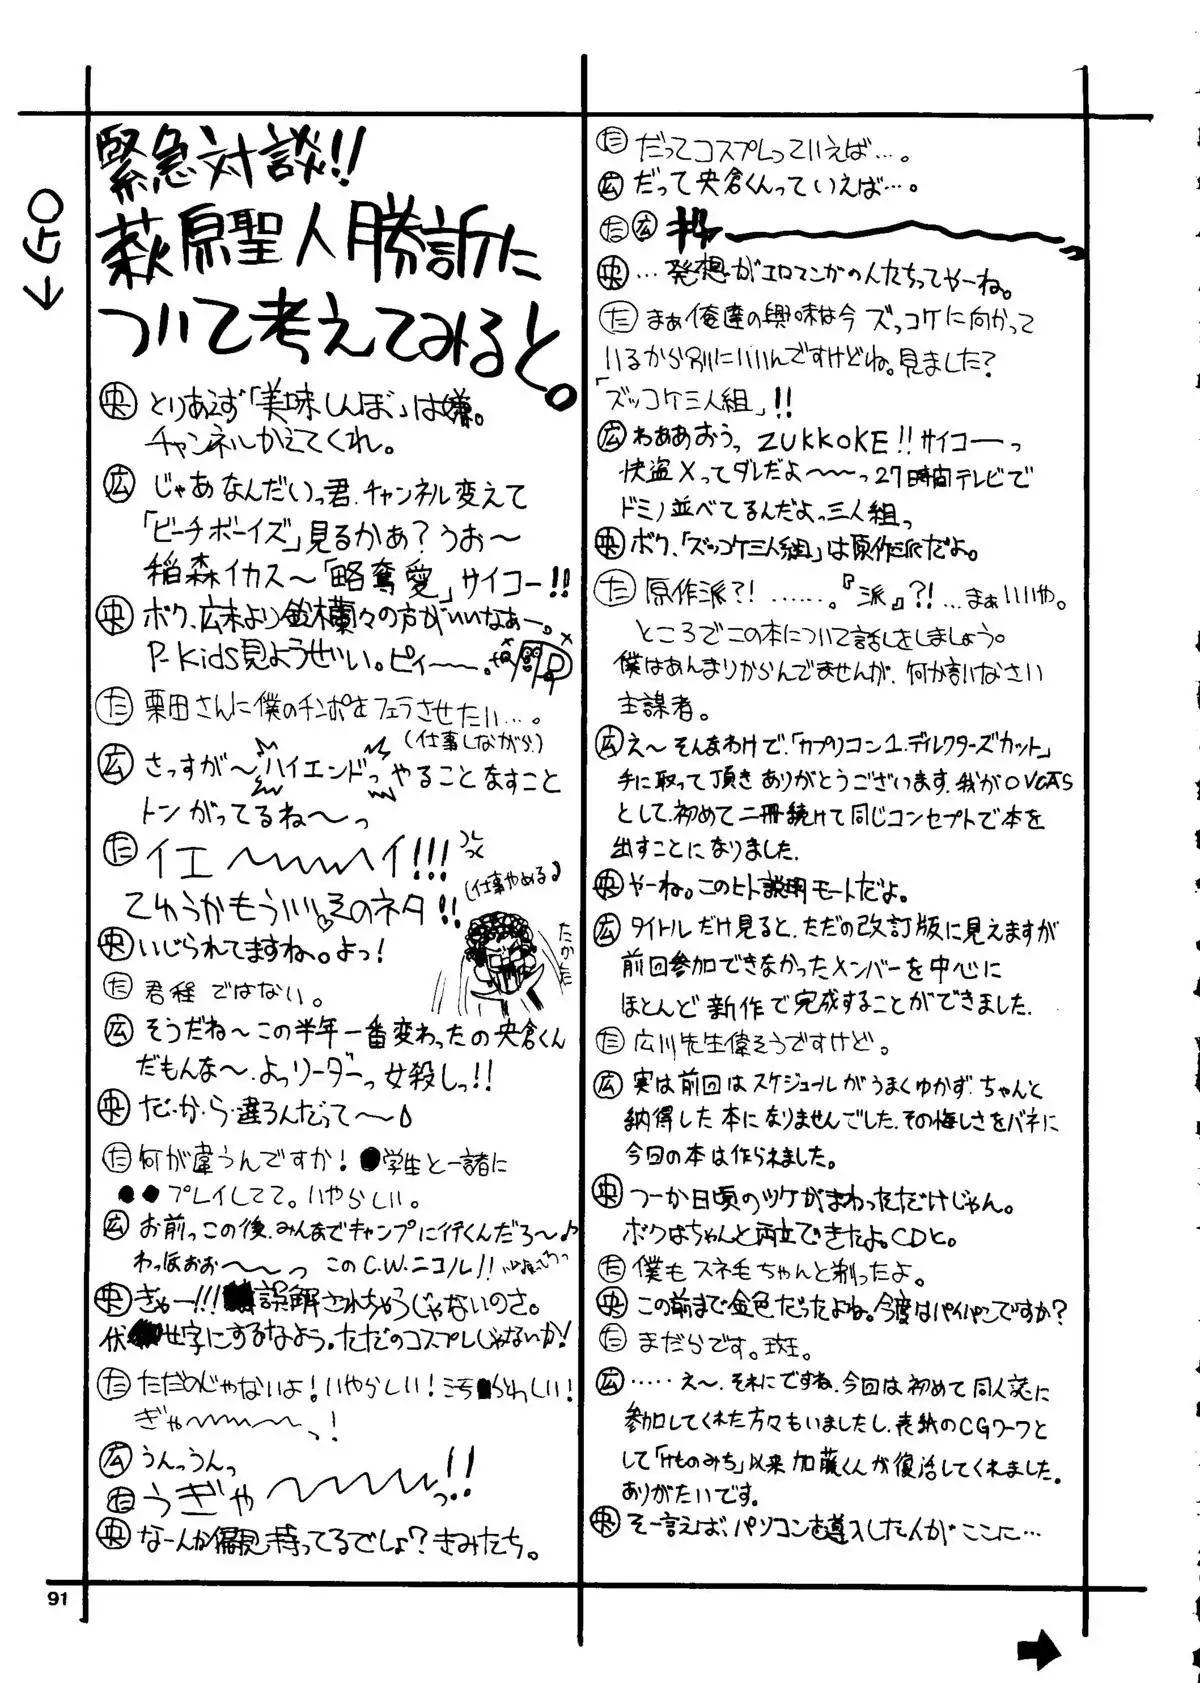 ←GO
緊急対談!!
萩原聖人勝訴に
ついて考えてみると。
央 とりあえず「美味しんぼ」は嫌。
チャンネルかえてくれ。
広 じゃあなんだいっ君、チャンネル変えて
「ビーチボーイズ」見るかあ?うお〜
稲森イカス〜「略奪愛」サイコー!!
央 ボク、広末より鈴木蘭々の声がいいなぁー。
P-Kids見ようぜい。ピィ〜〜。
た 栗田さんに僕のチンポをフェラさせたい…。
(仕事しながら)
広 さっすが〜ハイエンドっやることなすこと
トンがってるね〜っ
た イエ〜〜〜イ!!!
てゅうかもういいっそのネタ!!
(仕事やめる)
央 いじられてますね。よっ!
たかた
た 君程ではない。
広 そうだね〜この半年一番変わったの央倉くん
だもんな〜、よっリーダーっ女殺しっ!!
央 だ・か・ら・違ろんだって〜♪
た 何が違うんですか!●学生と一諸に
●●プレイしてて。いやらしい。
広 お前っこの後、みんなでキャンプにイギくんだろ〜♪
わっほぉぉ〜〜っ このC.W.ニコル!!
央 ぎゃー!!!誤解されちゃうじゃないのさ。
伏せ字にするなよう。ただのコスプレじゃないか!
た ただのじゃないよ!いやらしい!
ぎゃ〜〜〜〜っ!
広 うんっうんっ
た うぎゃ〜〜〜〜っ!!
央 なーんか偏見持ってるでしょ?きみたち。
た だってコスプレっていえば…。
広 だって央倉くんっていえば…。
た 広 ギャ〜〜〜〜
央 …発想がエロマンガの人たちってやーね。
た まぁ俺達の興味は今ズッコケに向かって
いるから別にいいんですけどね。見ました?
「ズッコケ三人組」!!
広 わああおうっ ZUKKOKE!!サイコーーっ
快盗Xってダレだよーーーっ27時間テレビで
ドミノ並べてるんだよっ三人組っ
央 ボク、「ズッコケ三人組」は原作派だよ。
た 原作派?!……。『派』?!…まぁいいや。
ところでこの本について話しをしましょう。
僕はあんまりからんでませんが、何か言いなさい
主謀者。
広 え〜そんなわけで、「カプリコン1.ディレクターズカット」
手に取って頂きありがとうございます。我がOVACAS
として、初めて二冊続けて同じコンセプトで本を
出すことになりました。
央 やーね。このヒト説明モードだよ。
広 タイトルだけ見ると、ただの改訂版に見えますが
前回参加できなかったメンバーを中心に
ほとんど新作で完成することができました。
た 広川先生偉そうですけど。
広 実は前回はスケジュールがうまくゆかず、ちゃんと
納得した本になりませんでした。その悔しさをバネに
今回の本は作られました。
央 つーか日頃のツケがまわっただけじゃん。
ボクはちゃんと両立できたよ。CDと。
た 僕もスネ毛ちゃんと剃ったよ。
央 この前まで金色だったよね。今度はパイパンですか?
た まだらです。斑。
広 ……え〜、それにですね、今回は初めて同人誌に
参加してくれた方々もいましたし、表紙のCGワークと
して「けものみち」以来加藤くんが復活してくれました。
ありがたいです。
央 そー言えば、パソコンを導入した人がここに…
91